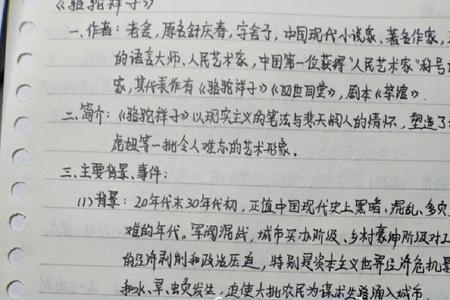 《骆驼祥子》
一、作者：老舍，原名舒庆春，字舍予，中国现代小说家、著名作家，
的语言大师、人民艺术家，中国第一位获得"人民艺术家"称号
家，其代表作有《骆驼祥子》《四世同堂》，剧本《茶馆》.
二、简介：《骆驼祥子》以现实主义的笔法与悲天悯人的情怀，塑造了
虎妞等一批令人难忘的艺术形象。
三、主要背景、事件：
(1)背景：20年代末30年代初，正值中国现代史上黑暗、混乱、多灾
难的年代。军阀混战，城市买办阶级、乡村豪绅阶级对工
的经济剥削和政治压迫，特别是资本主义世界经济危机
和水、旱、虫灾发生，迫使大批农民为谋求生路涌入城市